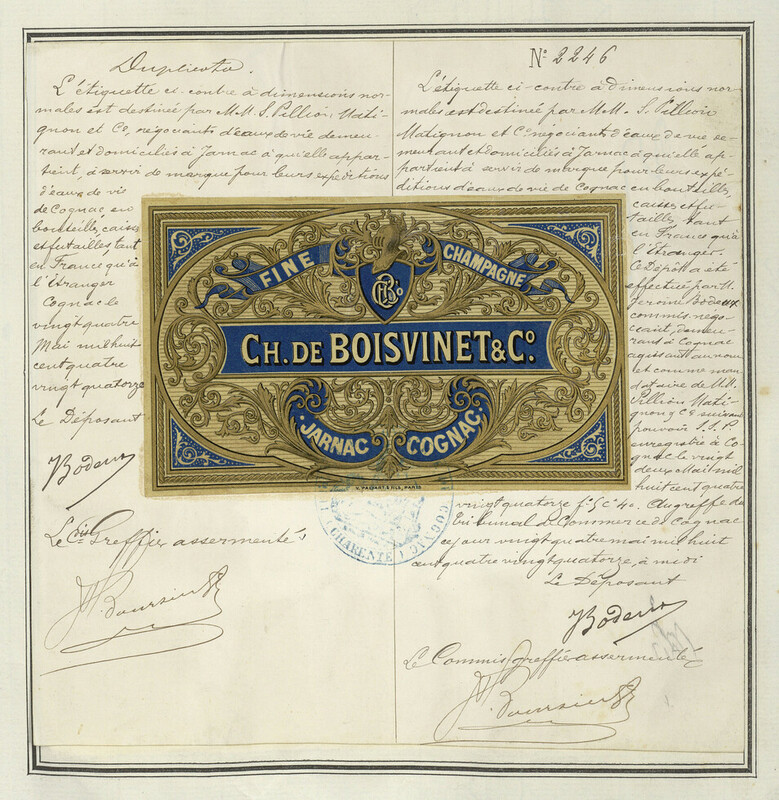 Duplicata.
L'étiquette ci-contre à dimensions nor-
males est destinée par M.M. S. Pillion, Mati-
gnon et Co, negociants d'eaux de vie demeu-
rant et domiciliés à Jarnac à qu'elle appar-
tient, à servir de marque pour leurs expéditions
d'eaux de vie
de Cognac en
bouteilles, caisses
et futailles, tant
en France qu'à
l'étranger
Cognac le
vingt quatre
Mai mil huit
cent quatre
vingt quatorze
Le Déposant
Boderux
Le Cis Greffier assermenté
No 2246
L'étiquette ci-contre à dimensions nor-
males est destinée par M.M. S. Pillion
Matignon et Co negociants d'eaux de vie de-
meurant et domiciliés à Jarnac à qu'elle ap-
partient à servir de marque pour leurs expé-
ditions d'eaux de vie de Cognac en bouteilles,
caisses et fu-
tailles, tant
en France qu'à
l'Etranger.
Ce Dépôt a été
effectué par M.
Jerome
commis nego-
ciant, demeu-
rant à Cognac
agissant au nom
et comme man-
dataire de M.M.
Pillion Mati-
gnon & Co suivant
pouvoir S.S.P.
enregistré à Co-
gnac le vingt
deux Mai mil
huit cent quatre
vingt quatorze fo 5 Co 40. Au greffe du
Tribunal de Commerce de Cognac
ce jour vingt quatre mai mil huit
cent quatre vingt quatorze à midi
Le Déposant
Le Commis greffier assermenté
FINE CHAMPAGNE
CH. DE BOISVINET & Co.
JARNAC COGNAC
COGNAC (CHARENTE)